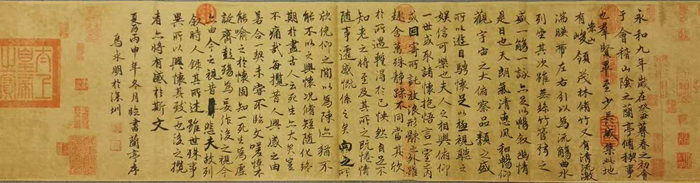 永和九年歲在癸丑暮春之初會
于會稽山陰之蘭亭脩稧事
也羣賢畢至少長咸集此地
有崇山峻領茂林脩竹又有清流激
湍暎帶左右引以為流觴曲水
列坐其次雖無絲竹管弦之
盛一觴一詠亦足以暢敘幽情
是日也天朗氣清惠風和暢仰
觀宇宙之大俯察品類之盛
所以遊目騁懷足以極視聽之
娛信可樂也夫人之相與俯仰
一世或取諸懷抱悟言一室之內
或因寄所託放浪形骸之外雖
趣舍萬殊靜躁不同當其欣
於所遇蹔得於己怏然自足不
知老之將至及其所之既惓情
隨事遷感慨係之矣向之所
欣俛仰之閒以為陳迹猶不
能不以之興懷況脩短隨化終
期於盡古人云死生亦大矣豈
不痛哉每攬昔人興感之由
若合一契未嘗不臨文嗟悼不
能喻之於懷固知一死生為虛
誕齊彭殤為妄作後之視今
亦由今之視昔悲夫故列
敘時人錄其所述雖世殊事
異所以興懷其致一也後之攬
者亦將有感於斯文
丙申年冬月臨書蘭亭序
永朋於深圳